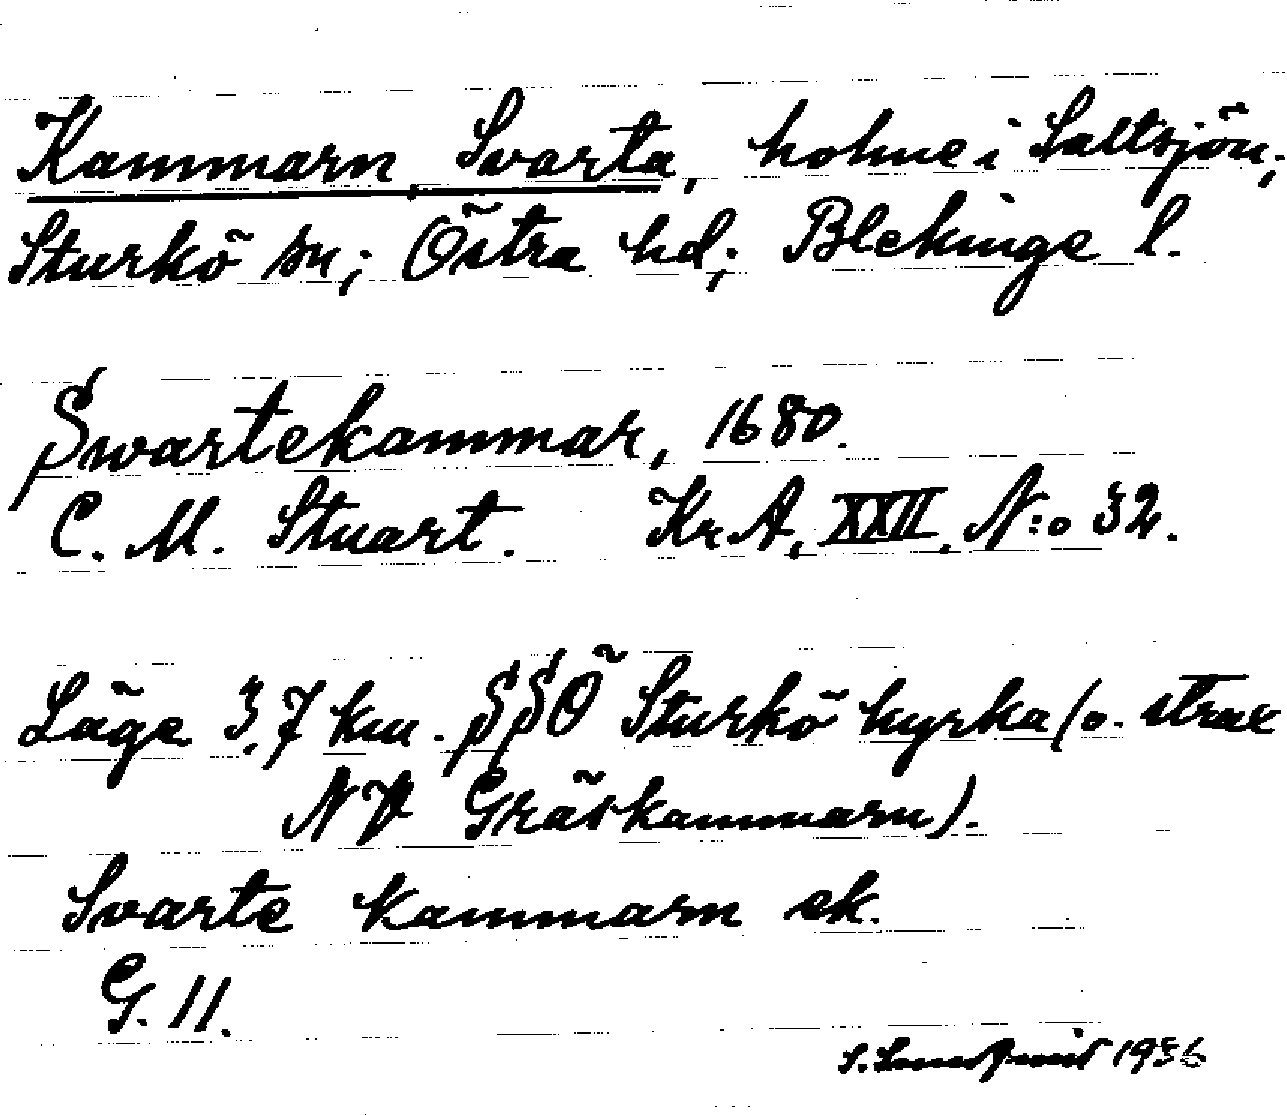 Kammarn, Svarta, holme i Saltsjön,
Sturkö sn; Östra hd; Blekinge l.
Swartekammar, 1680.
C. M. Stuart. Kr.A, XXII, N:o 32.
Läge 3,7 km. SSÖ Sturkö kyrka (o. strax
NV Gräskammarn).
Svarte kammarn ek.
G. 11.
S. 1936